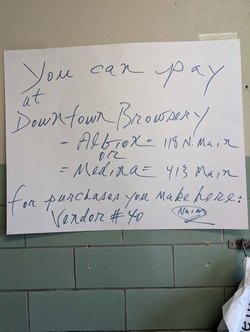 You can pay
at
Downtown Browsery
- Albion = 118 N. Main
or
- Medina = 413 Main
for purchases you make here:
Vendor # 40